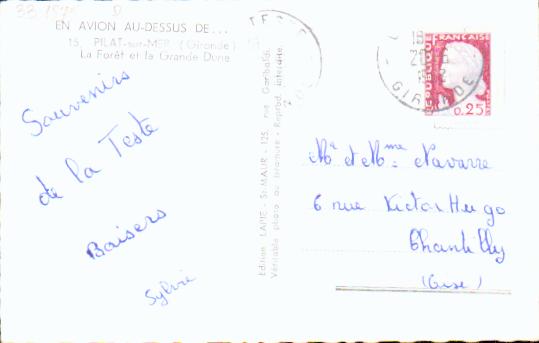 EN AVION AU-DESSUS DE...
15. PILAT-sur-MER (Gironde)
La Forêt et la Grande Dune
Souvenirs
de la Teste
Baisers
Sylvie
Edition LAPIE - St-MAUR - 125, rue Garibaldi
Véritable photo au bromure - Reprod. interdite
TESTE
GIRONDE
REPUBLIQUE FRANÇAISE
0,25
Mr et Mme Navarre
6 rue Victor Hugo
Chantilly
(Oise)